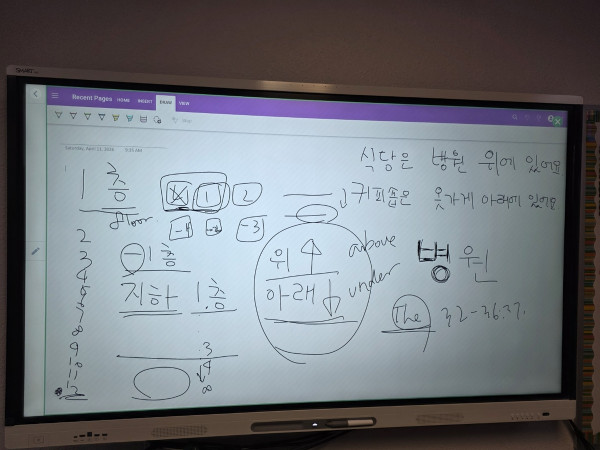 SMART
Recent Pages HOME INSERT DRAW VIEW
Saturday, April 12,
1 층
floor
X 1 2
-1 -2 -3
식당은 병원 위에 있어요
커피숍은 옷가게 아래에 있어요
위 above
아래 under
병원
The 32-36.37.
-1 층
지하 1층
2
3
4
8
9
10
11
12
3
4
∞